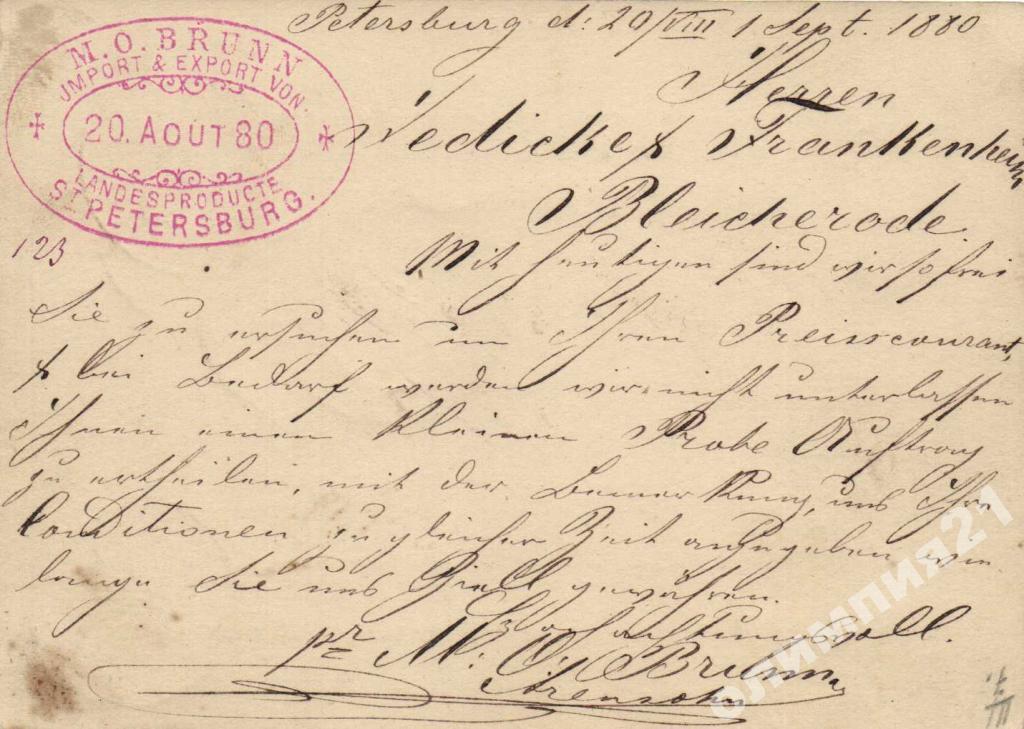 Petersburg d: 20/VIII 1 Sept. 1880
M. O. BRUNN
JMPORT & EXPORT VON
20. AOUT 80
LANDESPRODUCTE
ST. PETERSBURG.
Herren
& Frankenheim
Bleicherode
123
Mit heutigen sind wir so frei
Sie zu ersuchen um Ihren Preisscourant,
& bei Bedarf werden wir nicht unterlassen
Ihnen einen kleinen Probe Auftrag
zu ertheilen, mit der Bemerkung, uns Ihre
Conditionen zu gleicher Zeit anzugeben wie
lange Sie uns Ziell gewähren.
Hochachtungsvoll.
pr M: O: Brunn
олимпия21